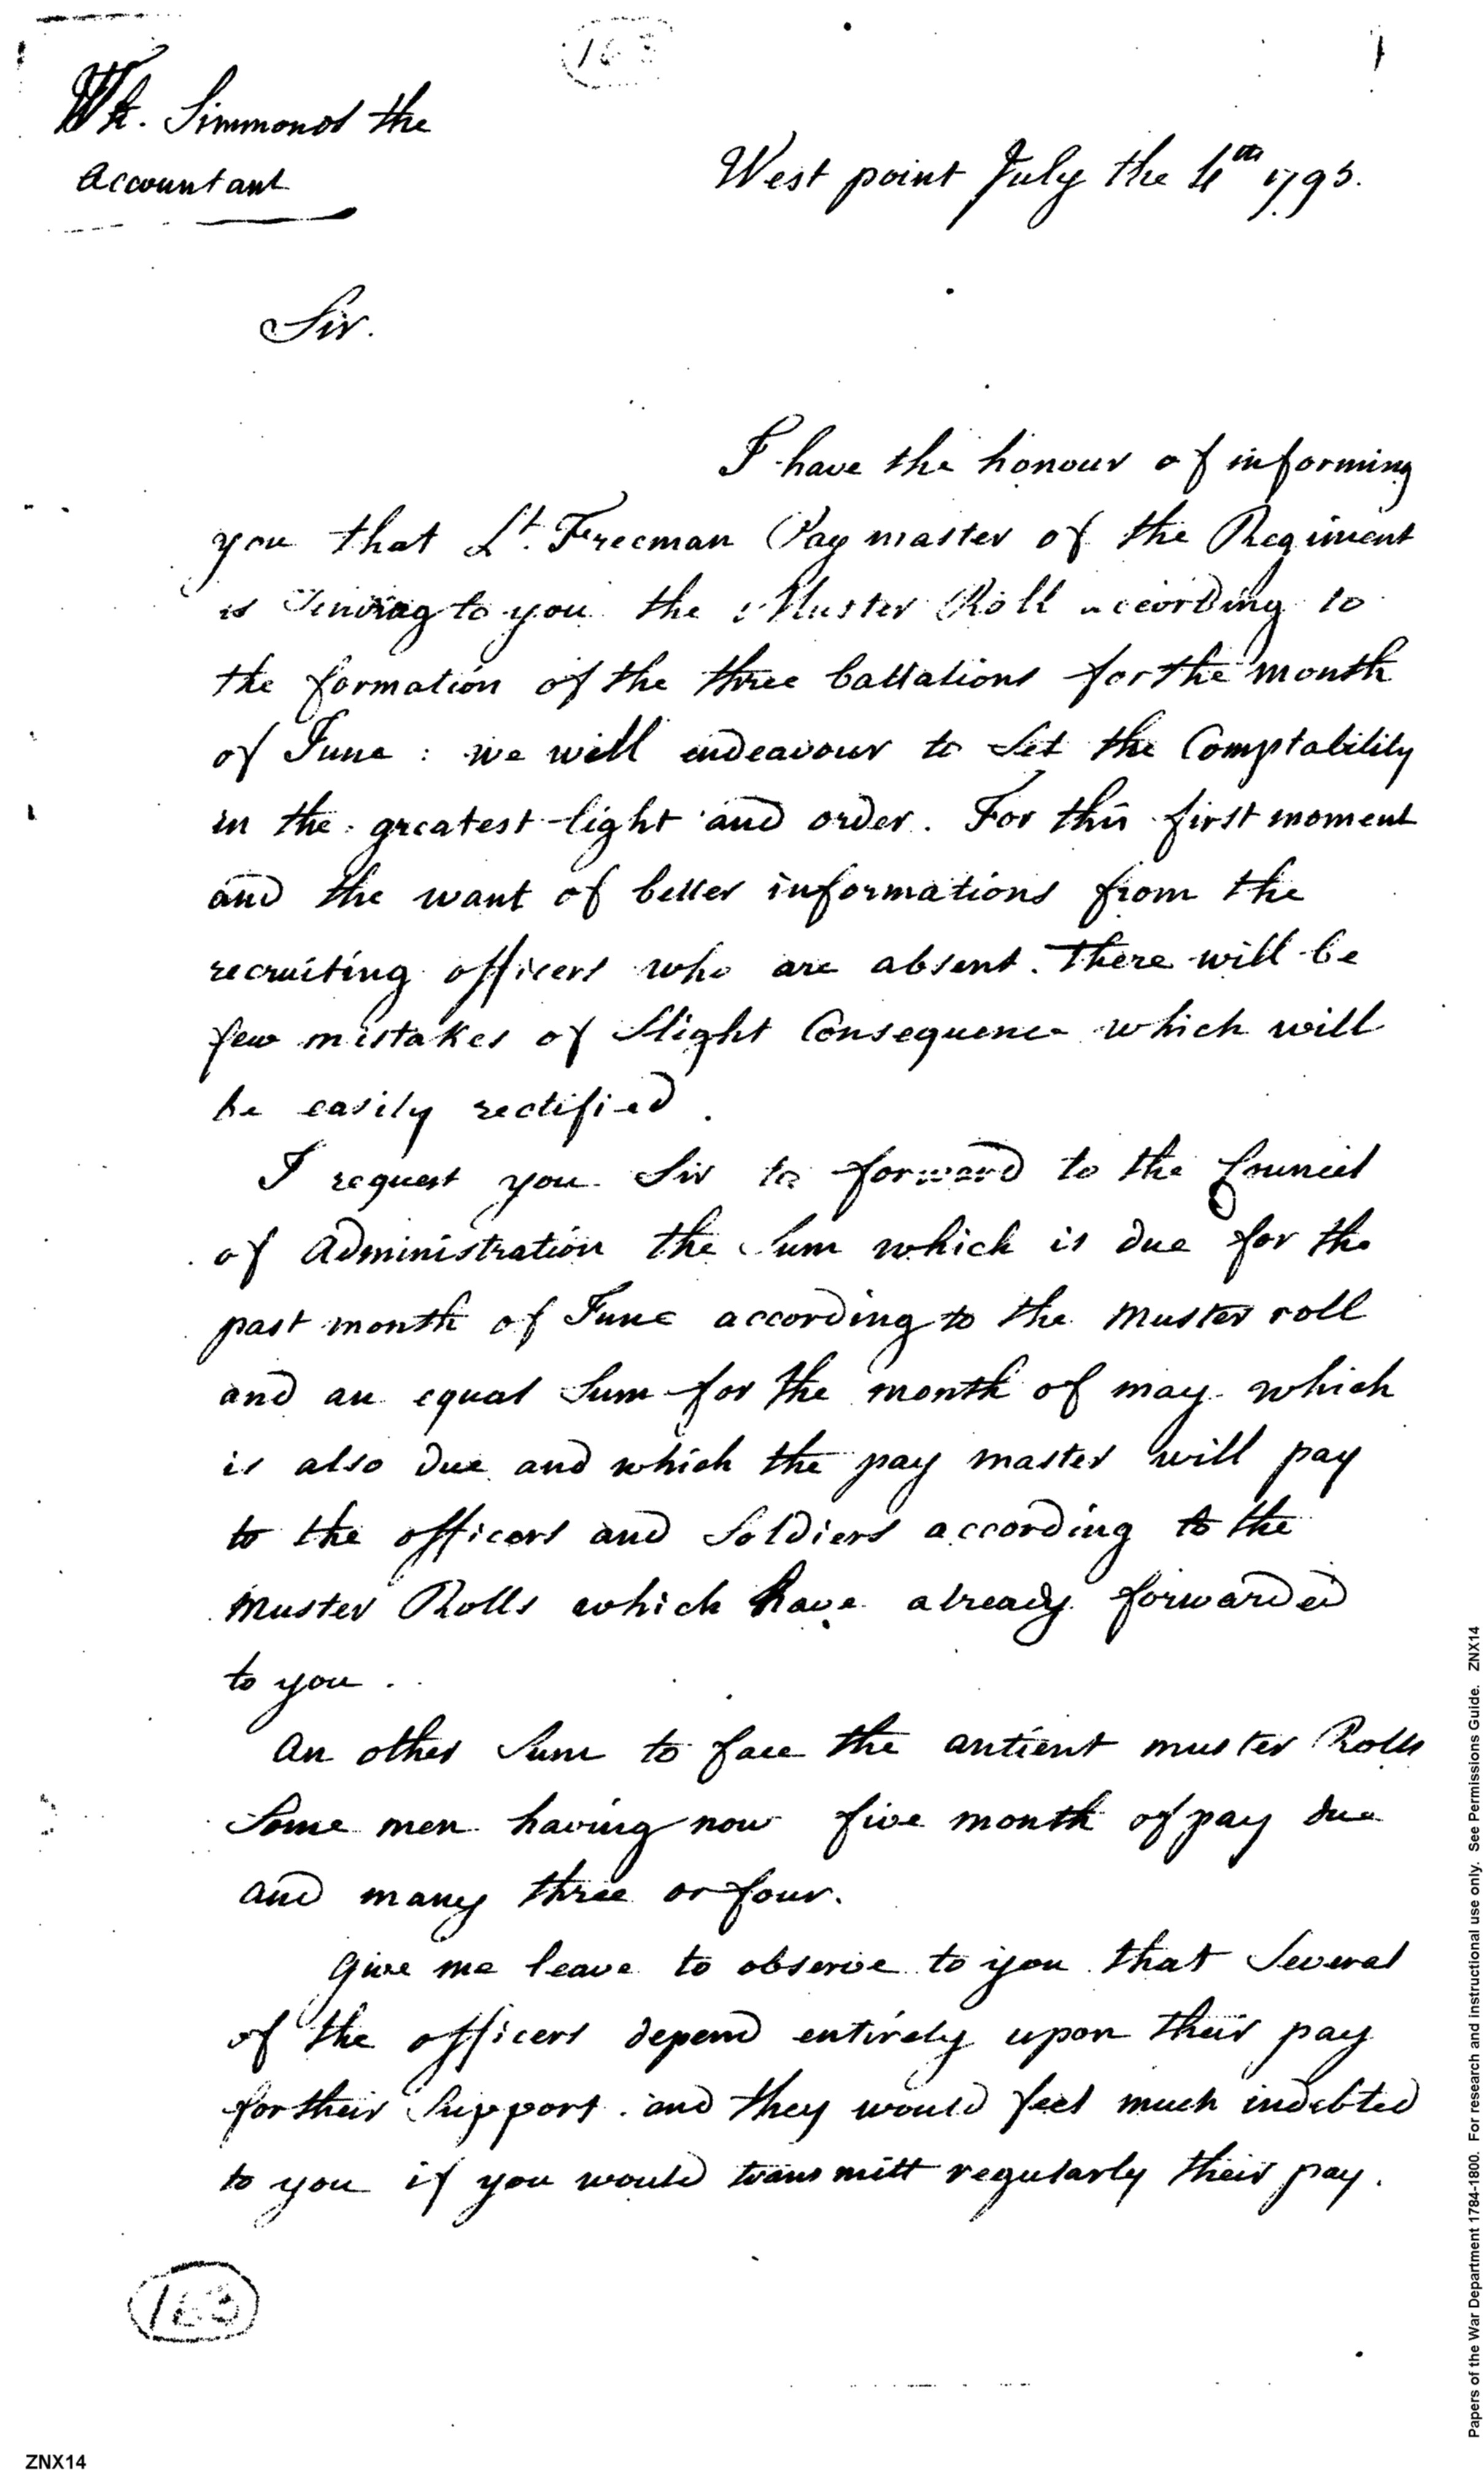 163
Wm. Simmonds the
Accountant
West point July the 4th 1795.
Sir.
I have the honour of informing
you that Lt. Freeman Pay master of the Regiment
is Sending to you the Muster Roll according to
the formation of the three battalions for the month
of June : we will endeavour to Set the Comptability
in the greatest light and order. For this first moment
and the want of better informations from the
recruiting officers who are absent. There will be
few mistakes of Slight Consequence which will
be easily rectified.
I request you Sir to forward to the Council
of Administration the Sum which is due for the
past month of June according to the Muster roll
and an equal Sum for the month of may which
is also due and which the pay master will pay
to the officers and Soldiers according to the
Muster Rolls which have already forwarded
to you.
An other Sum to face the antient muster Rolls
Some men having now five month of pay due
and many three or four.
Give me leave to observe to you that Several
of the officers depend entirely upon their pay
for their Support. and they would feel much indebted
to you if you would transmitt regularly their pay.
163
ZNX14
Papers of the War Department 1784-1800. For research and instructional use only. See Permissions Guide. ZNX14